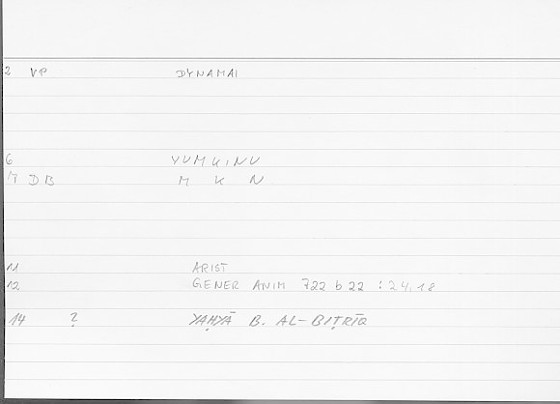 2 VP DYNAMAI
6 YUMKINU
7 DB M K N
11 ARIST
12 GENER ANIM 722 b 22 : 24.18
14 ? YAḤYĀ B. AL-BIṬRĪQ